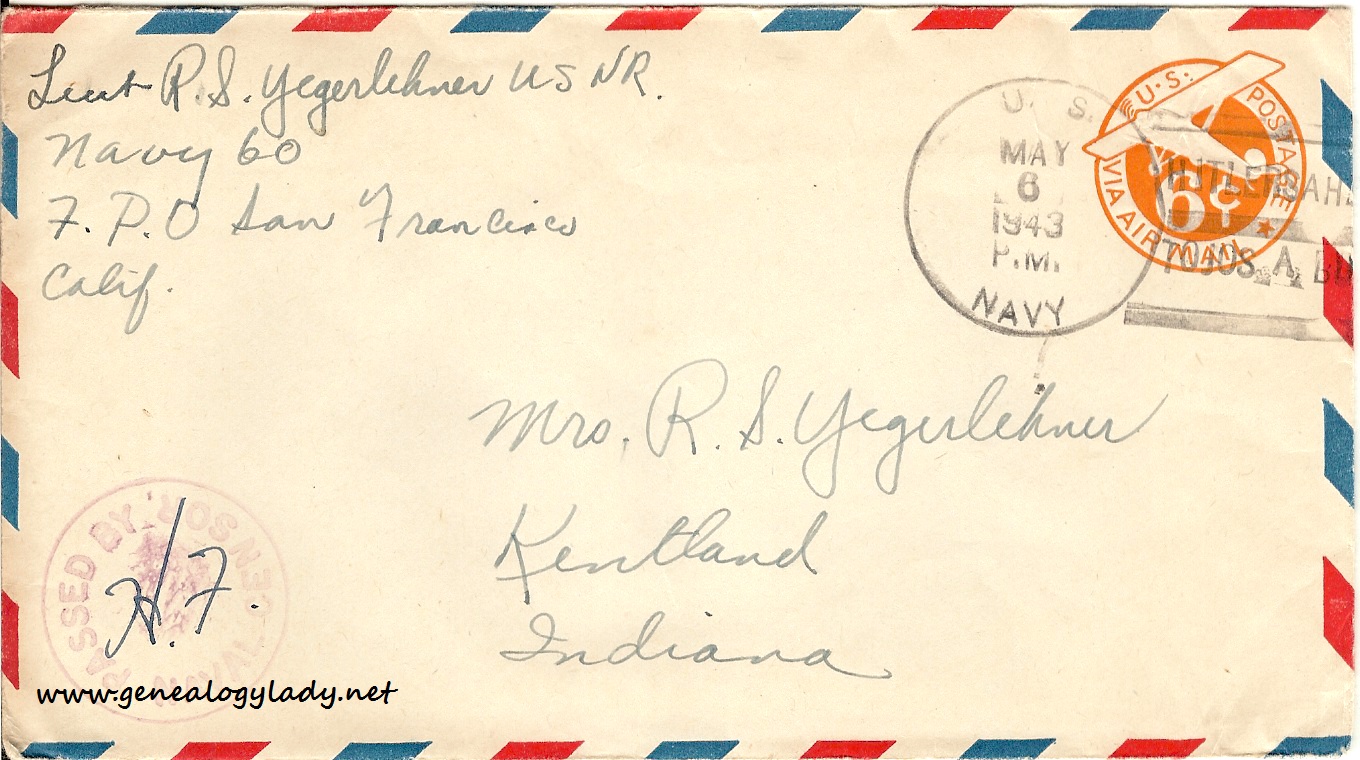 Lieut R. S. Yegerlehner USNR.
Navy 60
F. P. O San Francisco
Calif.
U. S.
MAY
6
1943
P.M.
NAVY
U.S. POSTAGE
6¢
VIA AIR MAIL
TOJOS. A
Mrs. R. S. Yegerlehner
Kentland
Indiana
PASSED BY NAVAL CENSOR
H. F.
www.genealogylady.net